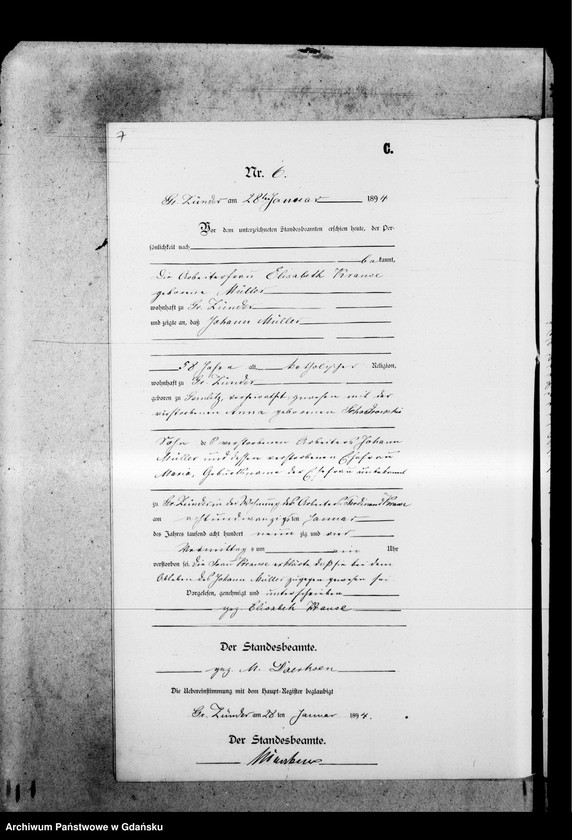 7
C.
Nr. 6.
Gr. Zünder am 28ten Januar 1894
Vor dem unterzeichneten Standesbeamten erschien heute, der Per-
sönlichkeit nach
be kannt,
Die Arbeiterfrau Elisabeth Krause
geborene Müller
wohnhaft zu Gr. Zünder
und zeigte an, daß Johann Müller
58 Jahre alt katholischer Religion,
wohnhaft zu Gr. Zünder
geboren zu verheirathet gewesen mit der
verstorbenen Anna geborenen
Sohn des verstorbenen Arbeiters Johann
Müller und dessen verstorbenen Ehefrau
Maria, Geburtsname der Ehefrau unbekannt
zu Gr. Zünder in der Wohnung des Arbeiters Ferdinand Krause
am achtundzwanzigsten Januar
des Jahres tausend acht hundert neun zig und vier
Vormittags um ein Uhr
verstorben sei. Die Frau Krause erklärte daß sie bei dem
Ableben des Johann Müller zugegen gewesen sei.
Vorgelesen, genehmigt und unterschrieben
gez. Elisabeth Krause
Der Standesbeamte.
gez. M.
Die Uebereinstimmung mit dem Haupt-Register beglaubigt
Gr. Zünder am 28 ten Januar 1894.
Der Standesbeamte.
Archiwum Państwowe w Gdańsku